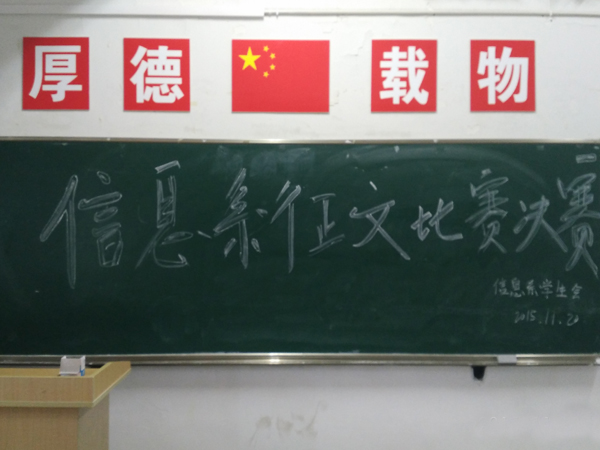 厚德载物
信息系征文比赛决赛
信息系学生会
2015.11.20